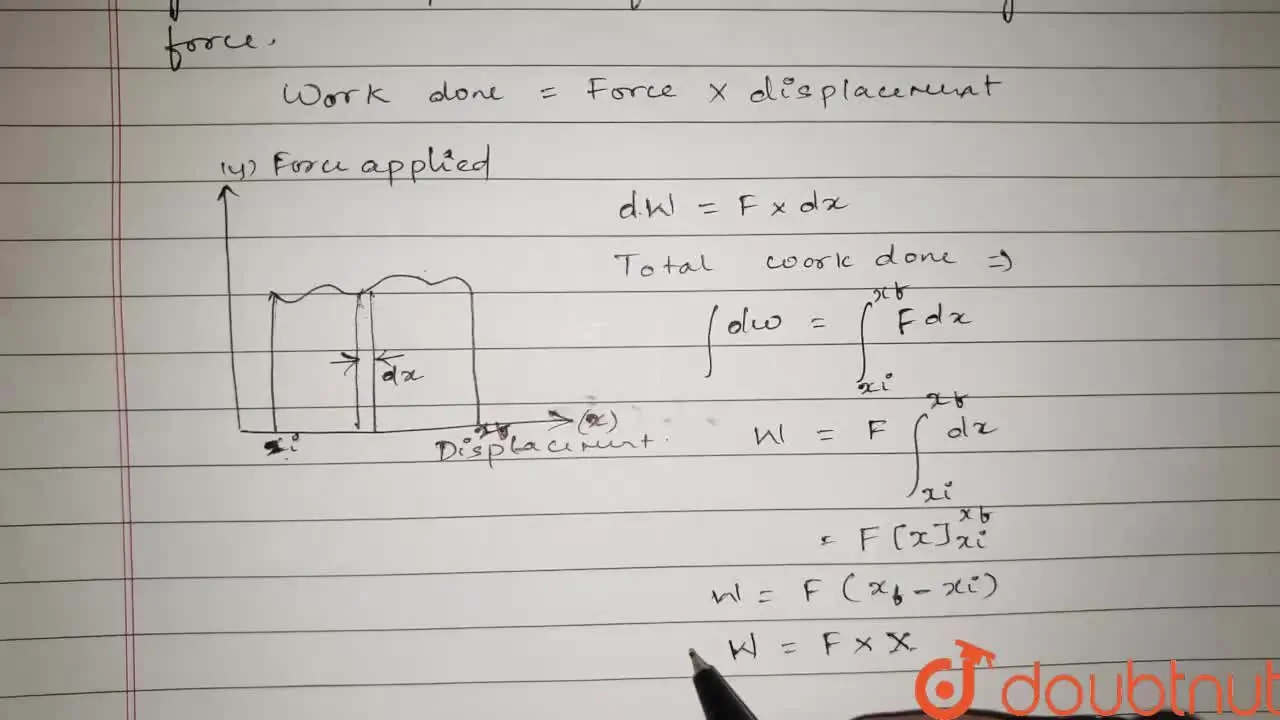 force.
Work done = Force × displacement
(y) Force applied
dW = F × dx
Total work done ⇒
∫dw = ∫ xi xf F dx
dx
xi xf (x)
Displacement.
W = F ∫ xi xf dx
= F [x] xi xf
W = F (xf - xi)
W = F × X
doubtnut